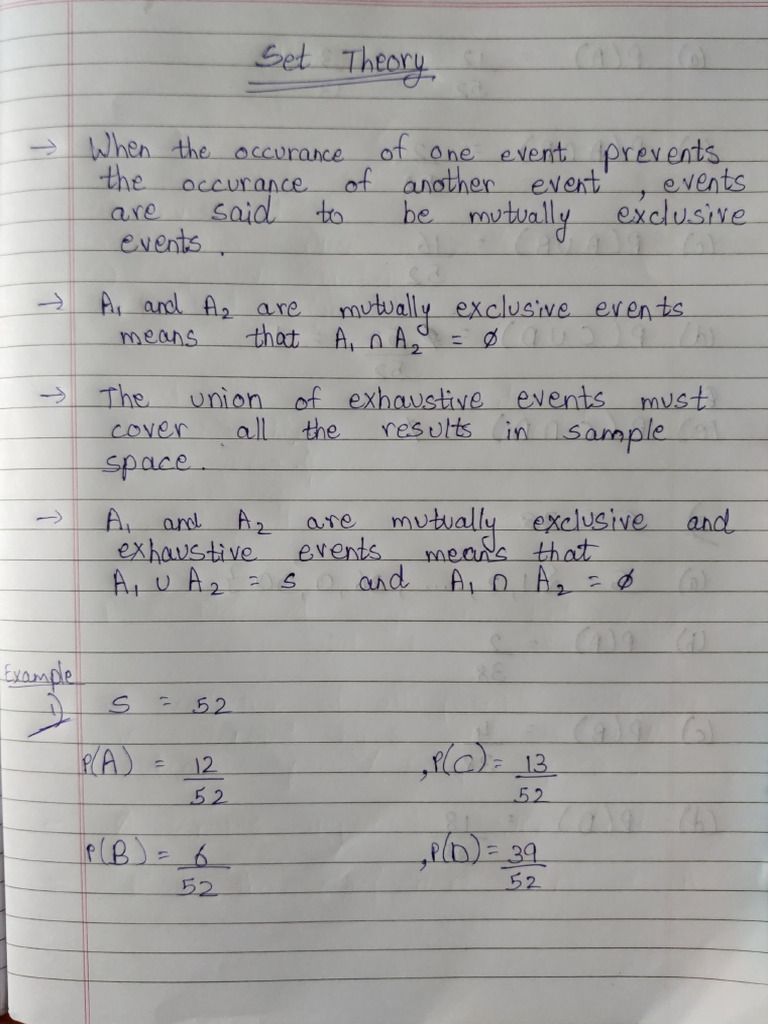 Set Theory
→ When the occurance of one event prevents
the occurance of another event , events
are said to be mutually exclusive
events .
→ A₁ and A₂ are mutually exclusive events
means that A₁ ∩ A₂ = ∅
→ The union of exhaustive events must
cover all the results in sample
space .
→ A₁ and A₂ are mutually exclusive and
exhaustive events means that
A₁ ∪ A₂ = S and A₁ ∩ A₂ = ∅
Example
1) S = 52
P(A) = 12/52 , P(C) = 13/52
P(B) = 6/52 , P(D) = 39/52